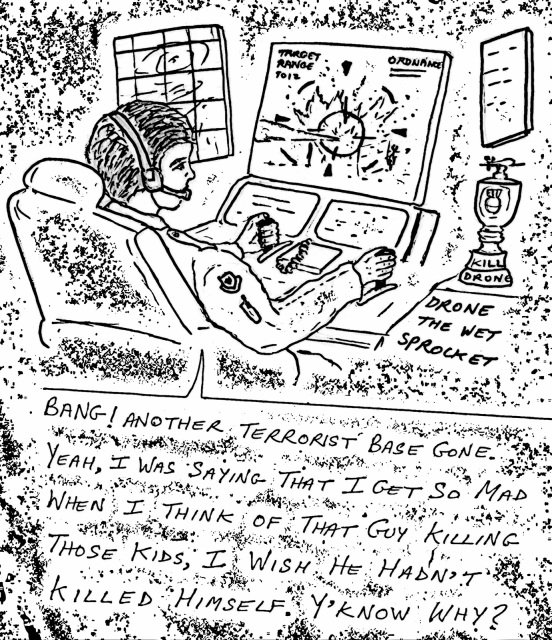 TARGET
RANGE
7012
ORDNANCE
KILL
DRONE
DRONE
THE WET
SPROCKET
BANG! ANOTHER TERRORIST BASE GONE.
YEAH, I WAS SAYING THAT I GET SO MAD
WHEN I THINK OF THAT GUY KILLING
THOSE KIDS, I WISH HE HADN'T
KILLED HIMSELF. Y'KNOW WHY?